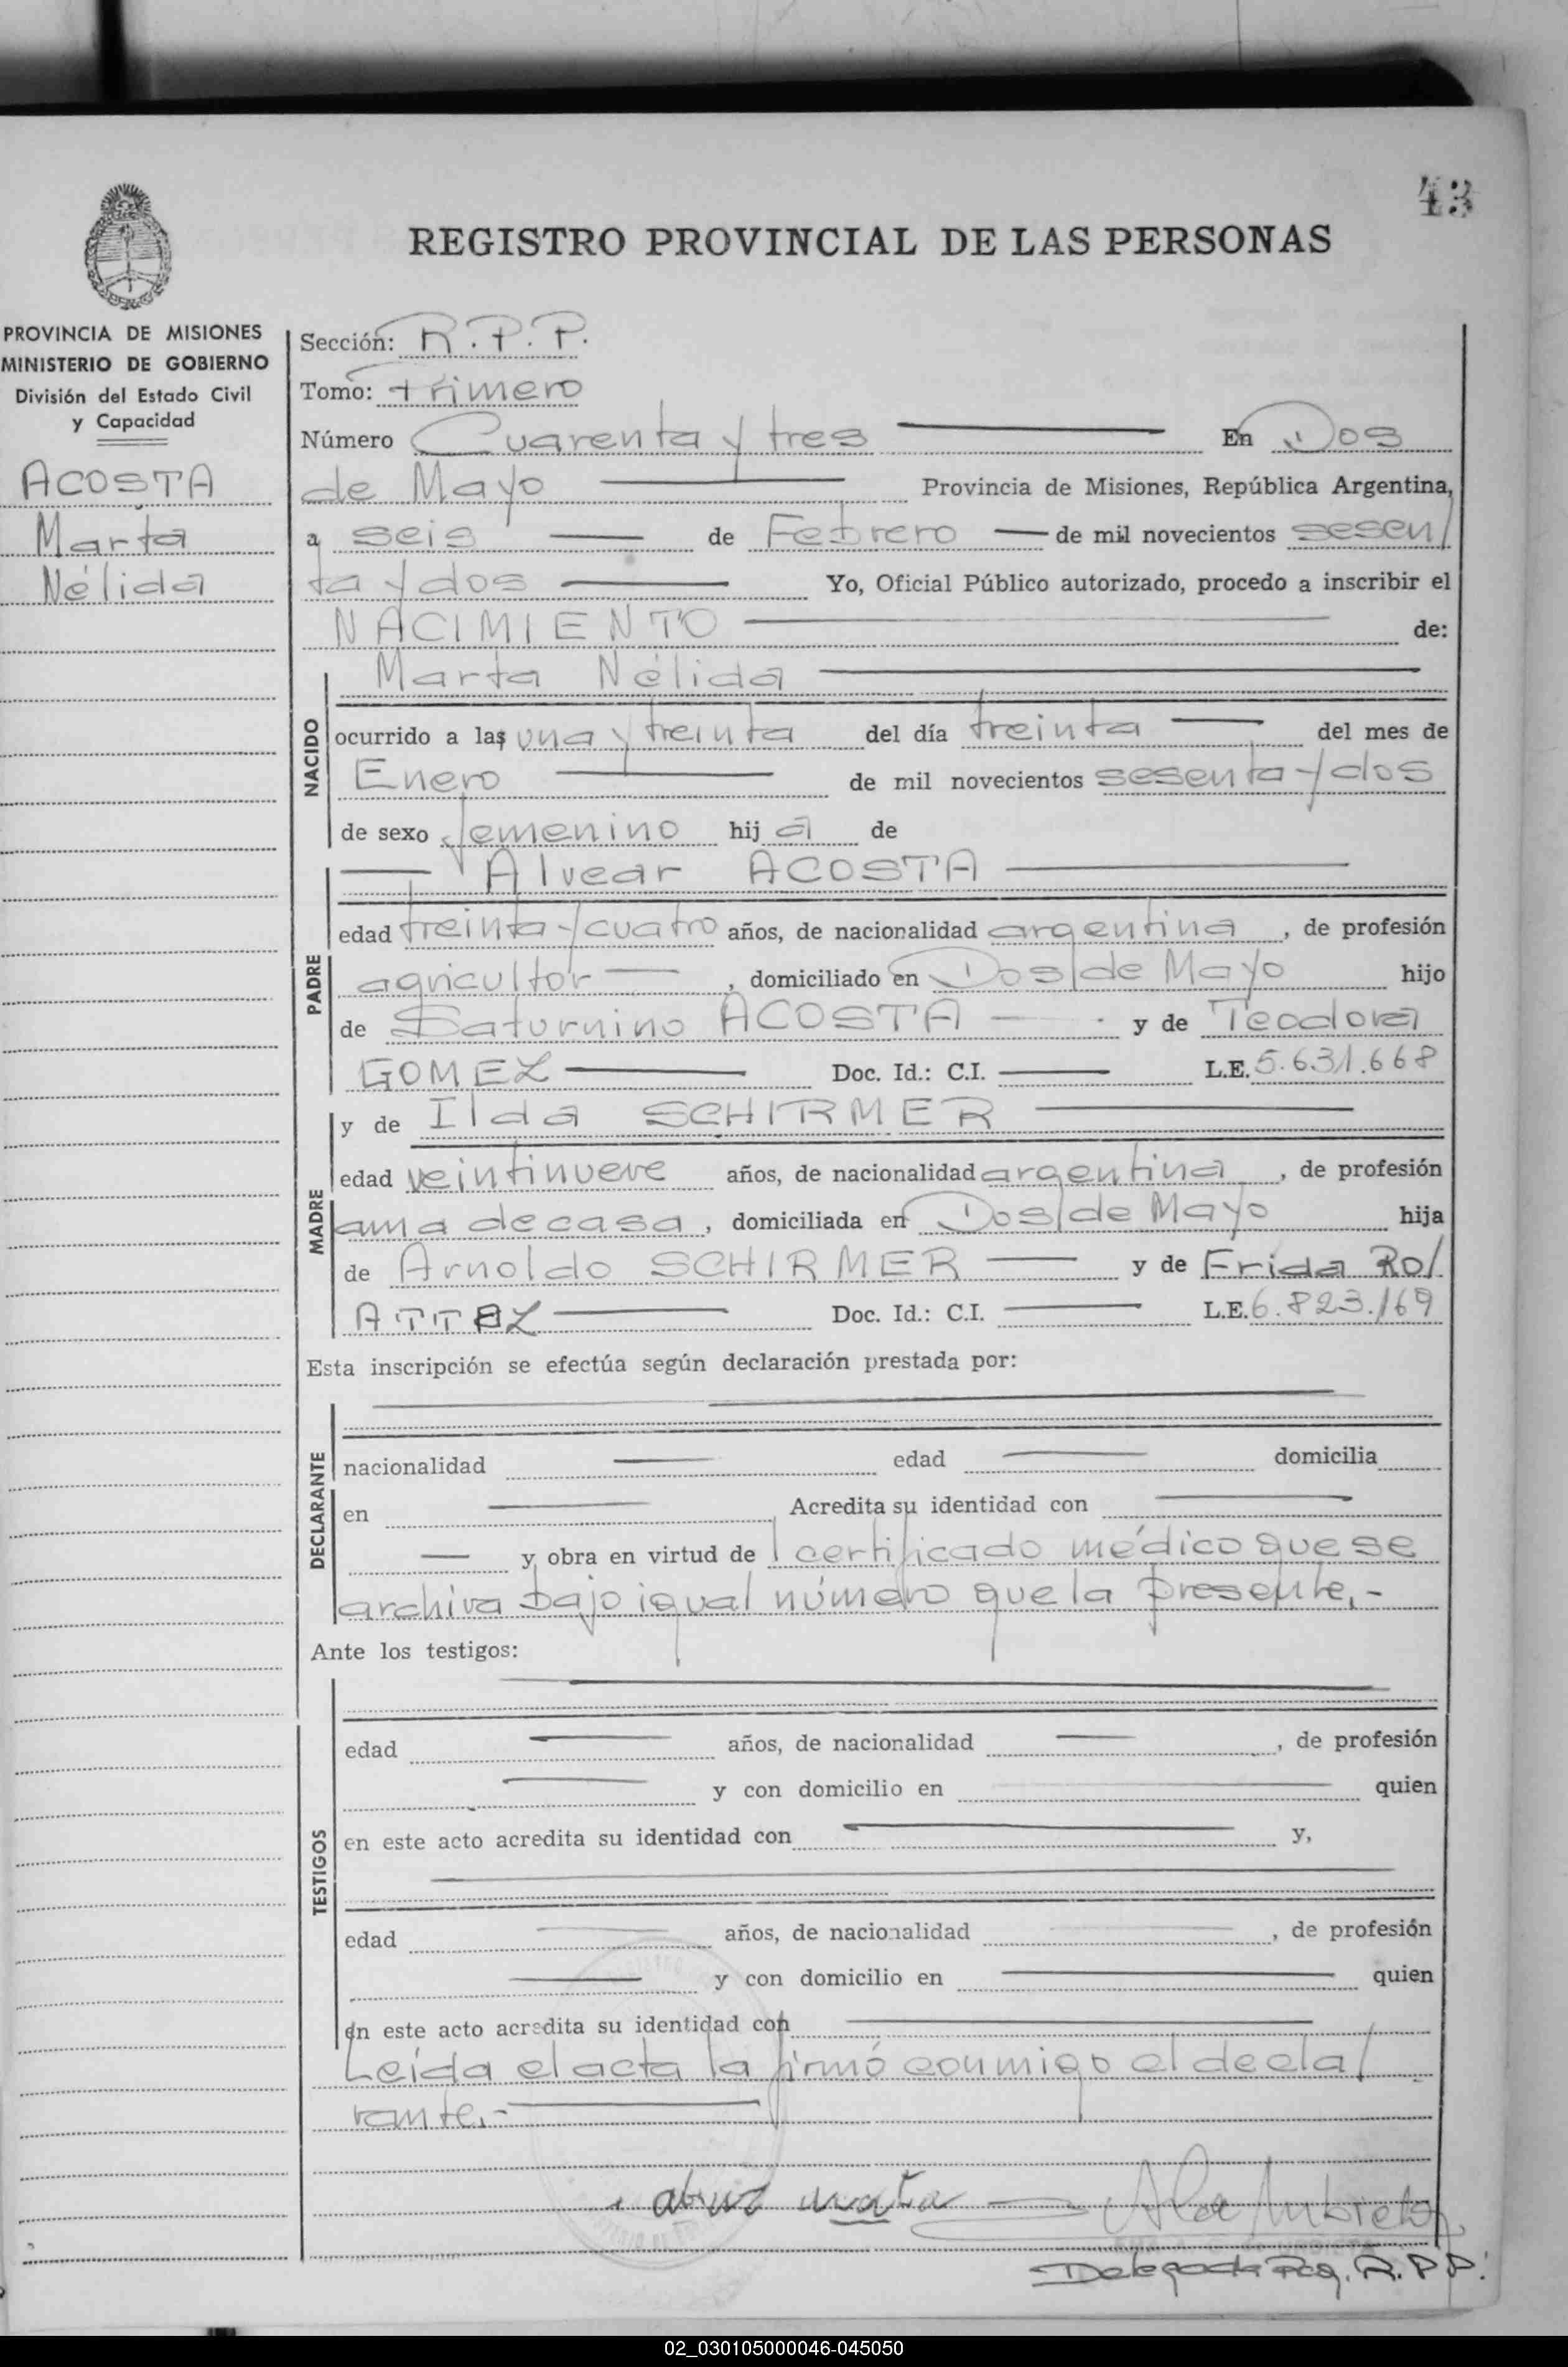 43
REGISTRO PROVINCIAL DE LAS PERSONAS
PROVINCIA DE MISIONES
MINISTERIO DE GOBIERNO
División del Estado Civil
y Capacidad
ACOSTA
Marta
Nélida
Sección: R.P.P.
Tomo: Primero
Número Cuarenta y tres En Dos
de Mayo Provincia de Misiones, República Argentina,
a seis de Febrero de mil novecientos sesen/
ta y dos Yo, Oficial Público autorizado, procedo a inscribir el
NACIMIENTO de:
NACIDO
Marta Nélida
ocurrido a las una y treinta del día treinta del mes de
Enero de mil novecientos sesenta y dos
de sexo femenino hija de
PADRE
Alvear ACOSTA
edad treinta y cuatro años, de nacionalidad argentina, de profesión
agricultor, domiciliado en Dos de Mayo hijo
de Saturnino ACOSTA y de Teodora
GOMEZ Doc. Id.: C.I. L.E. 5.631.668
MADRE
y de Ilda SCHIRMER
edad veintinueve años, de nacionalidad argentina, de profesión
ama de casa, domiciliada en Dos de Mayo hija
de Arnoldo SCHIRMER y de Frida Ro/
Doc. Id.: C.I. L.E. 6.823.169
Esta inscripción se efectúa según declaración prestada por:
DECLARANTE
nacionalidad edad domicilia
en Acredita su identidad con
y obra en virtud de certificado médico que se
archiva bajo igual número que la presente.-
Ante los testigos:
TESTIGOS
edad años, de nacionalidad , de profesión
y con domicilio en quien
en este acto acredita su identidad con y,
edad años, de nacionalidad , de profesión
y con domicilio en quien
en este acto acredita su identidad con
Leída el acta la firmó conmigo el decla/
rante.-
R.P.P.
02_030105000046-045050